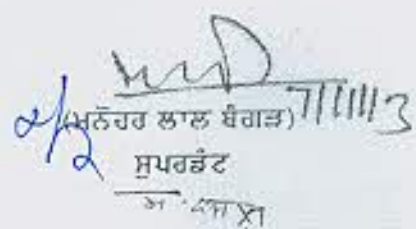 (ਮਨੋਹਰ ਲਾਲ ਬੰਗੜ) 7/11/13
ਸੁਪਰਡੰਟ